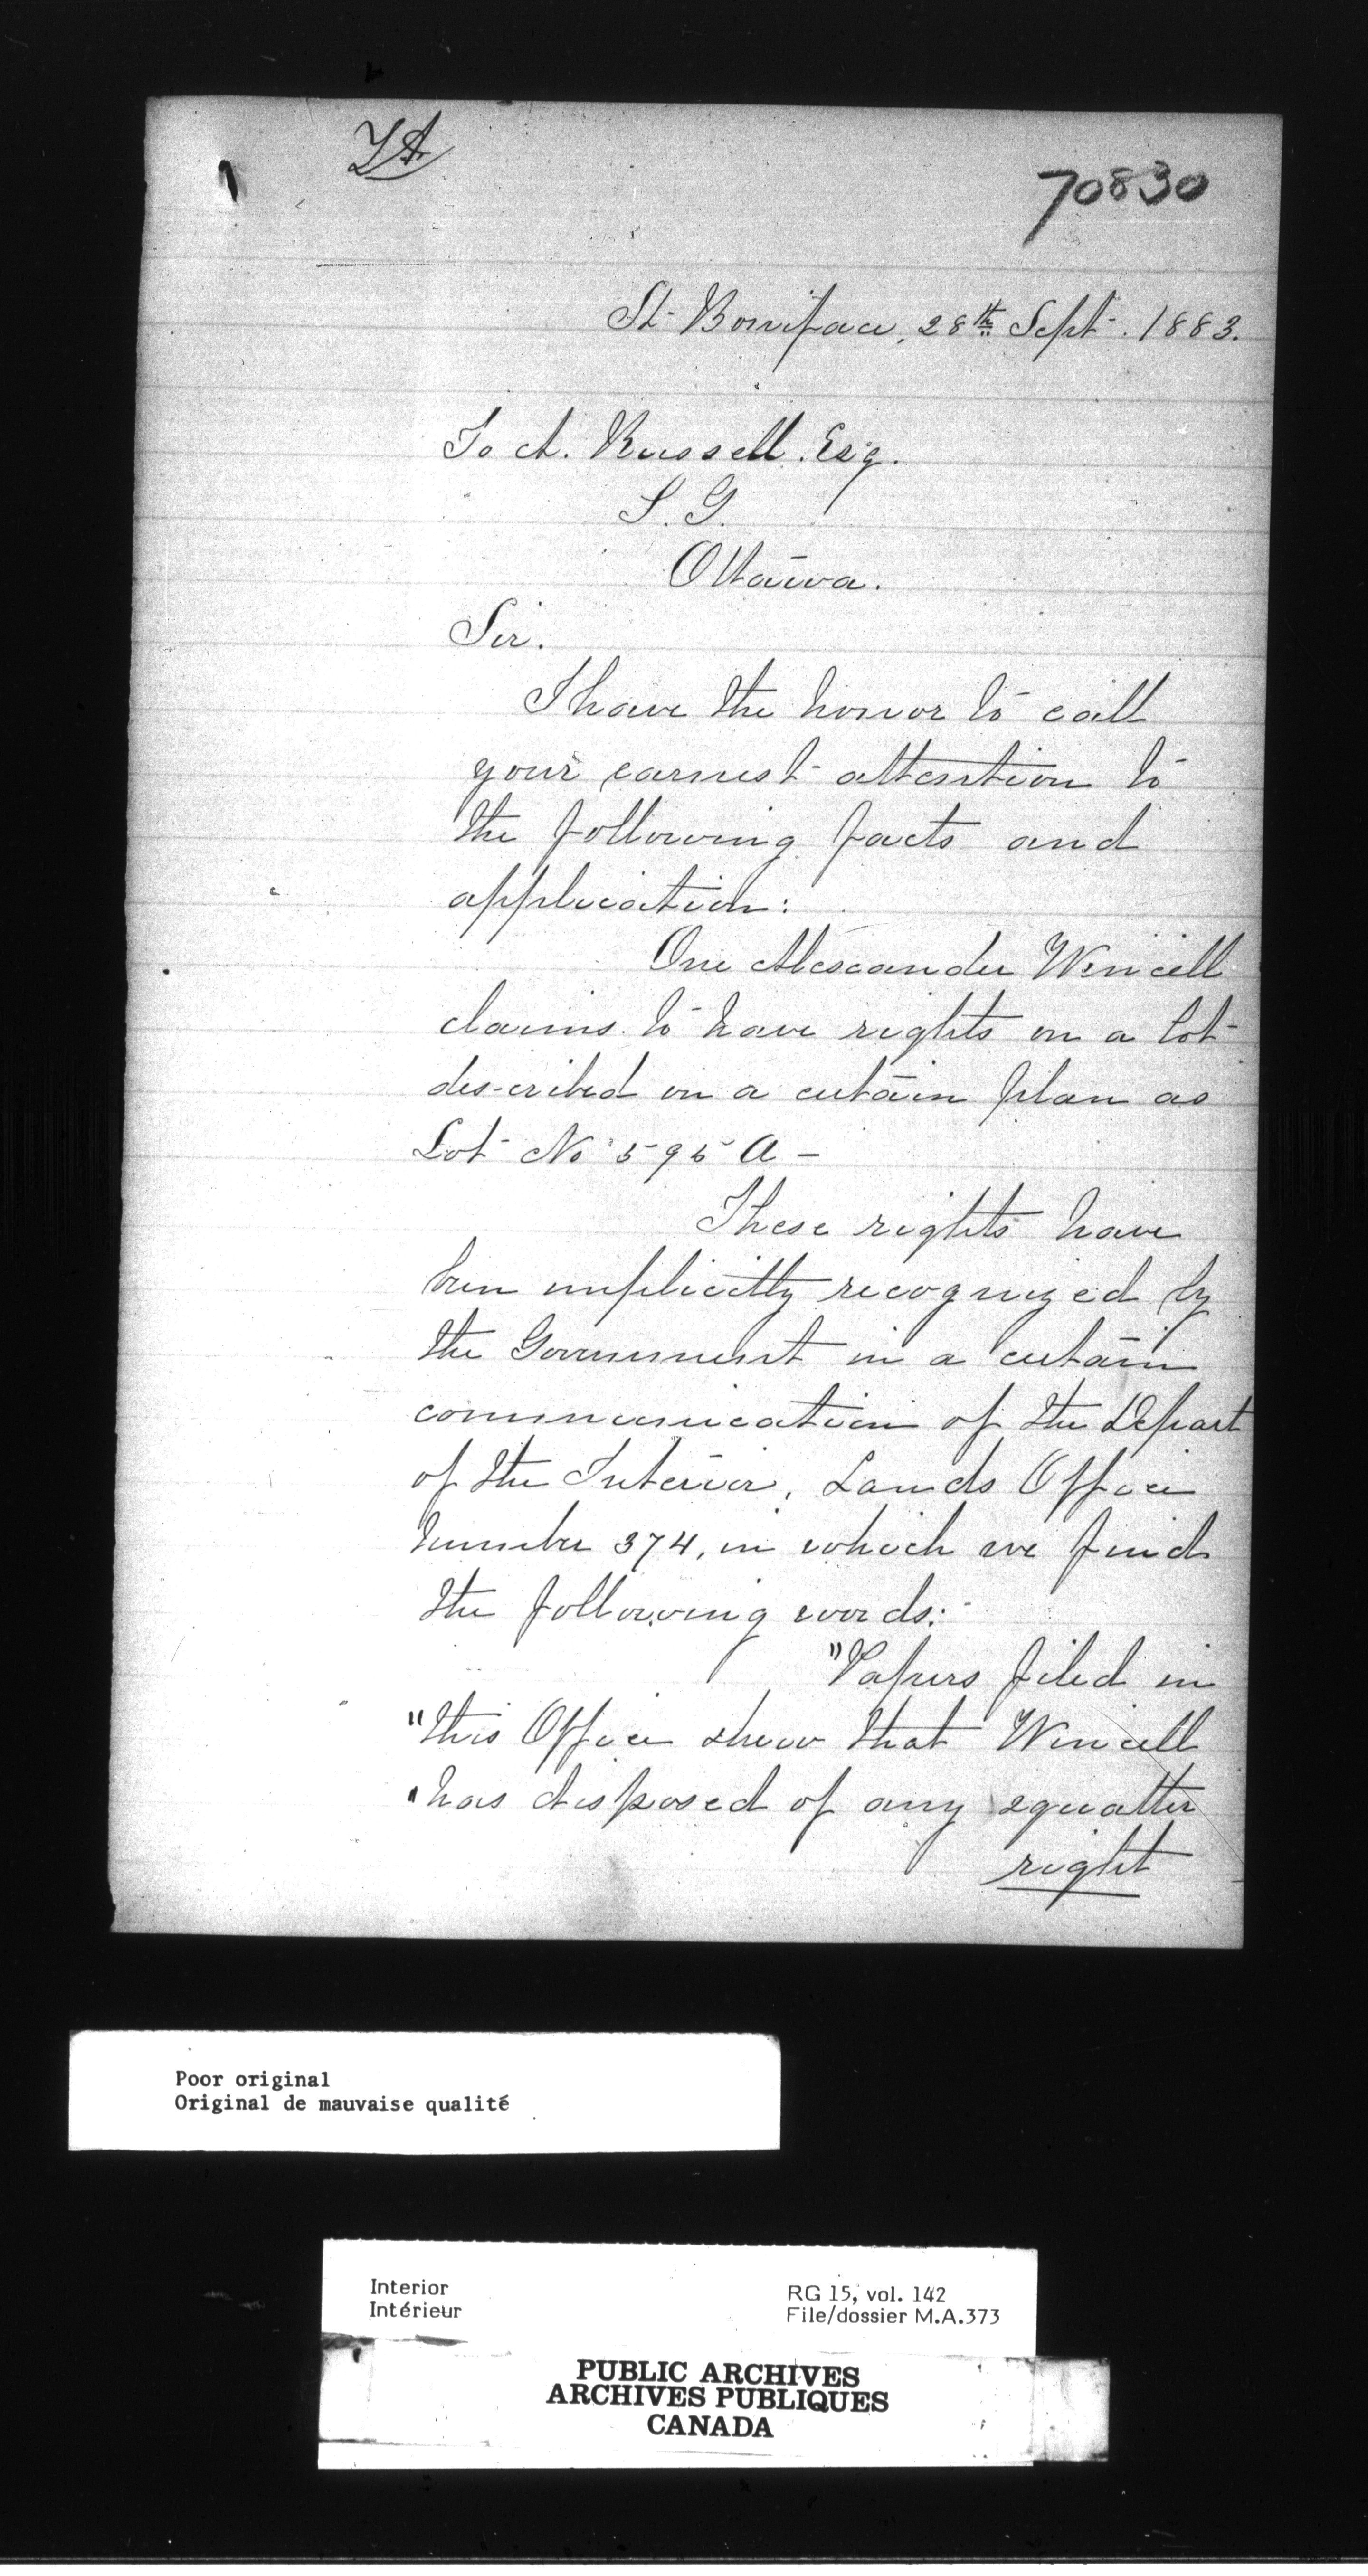 70830
St. Boniface, 28th Sept. 1883.
To A. Russell. Esq.
S. G.
Ottawa.
Sir.
I have the honor to call
your earnest attention to
the following facts and
application:
One Alexander Wincell
claims to have rights on a lot
described on a certain plan as
Lot No 595 A -
These rights have
been implicitly recognized by
the Government in a certain
communication of the Depart
of the Interior, Lands Office
number 374, in which we find
the following words:
"Papers filed in
"this Office shew that Wincell
"has disposed of any squatter
right
Poor original
Original de mauvaise qualité
Interior
Intérieur
RG 15, vol. 142
File/dossier M.A.373
PUBLIC ARCHIVES
ARCHIVES PUBLIQUES
CANADA